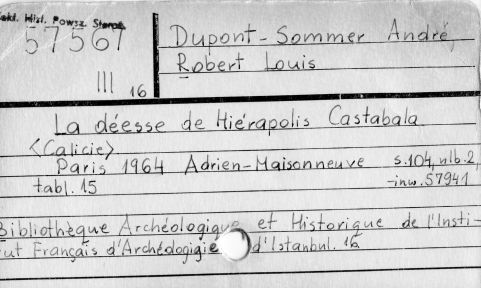 Zakł. Hist. Powsz. Staroż.
57567
III 16
Dupont-Sommer André,
Robert Louis
La déesse de Hiérapolis Castabala
<Calicie>
Paris 1964 Adrien-Maisonneuve s.104, nlb.2,
tabl.15
-inw.57941
Bibliothèque Archéologique et Historique de l'Insti-
tut Français d'Archéologigie d'Istanbul. 16.